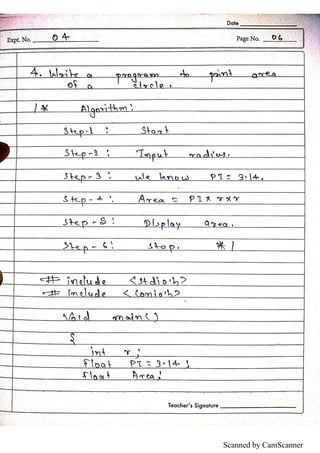 Date
Expt. No. 04
Page No. 06
4. Write a program to print area
of a circle.
/* Algorithm:
Step-1 : Start
Step-2 : Input radius.
Step-3 : we know PI = 3.14.
Step-4 : Area = PI x r x r
Step-5 : Display area.
Step-6 : stop. */
# include <stdio.h>
# include <conio.h>
void main()
{
int r;
float PI = 3.14;
float Area;
Teacher's Signature
Scanned by CamScanner